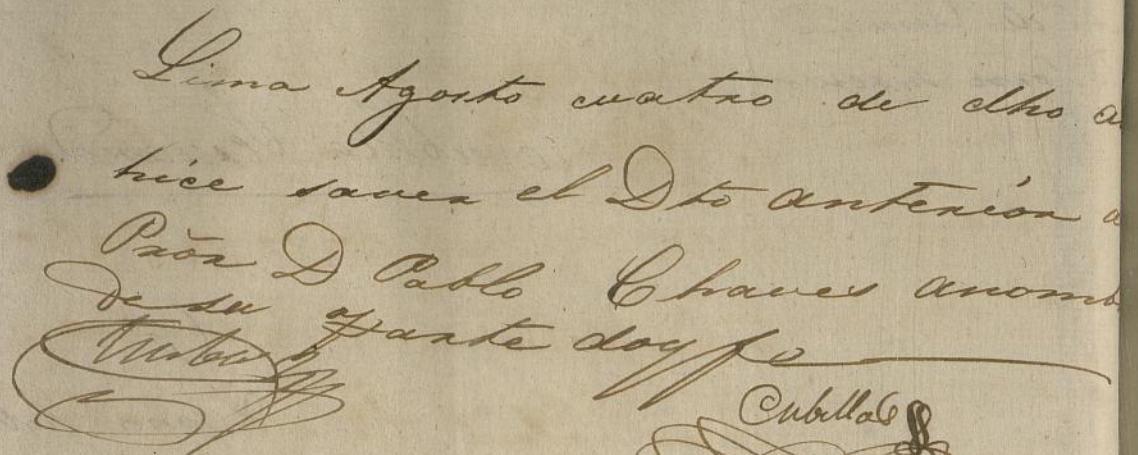 Lima Agosto cuatro de dho a
hice saver el Dto anterior a
Prõr D Pablo Chaves anomb
de su parte doy fe
Cubillas